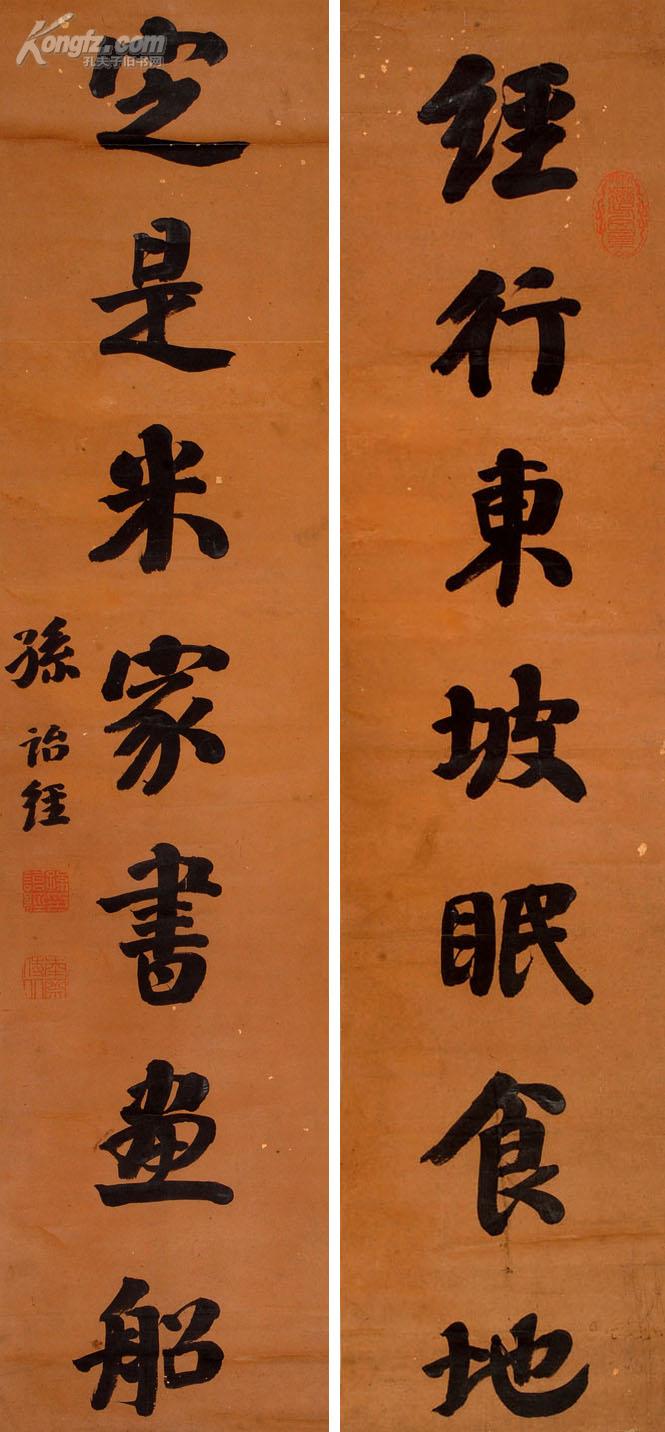 經行東坡眠食地
定是米家書畫船
孫詒經
Kongfz.com
孔夫子旧书网